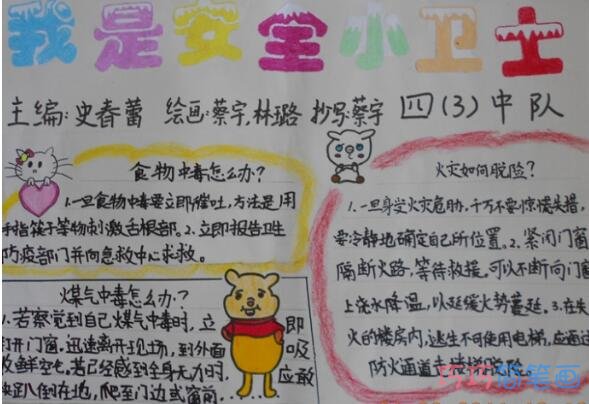 我是安全小卫士
主编:史春蕾 绘画:蔡宇,林璐 抄写:蔡宇 四(3)中队
食物中毒怎么办?
1.一旦食物中毒要立即催吐,方法是用
手指筷子等物刺激舌根部。2.立即报告卫生
防疫部门并向急救中心求救。
煤气中毒怎么办?
1.若察觉到自己煤气中毒时,立即
打开门窗,迅速离开现场,到外面吸
收鲜空气,若已经感到全身无力时,应敢
快趴倒在地,爬至门边或窗前
火灾如何脱险?
1.一旦身受火灾危胁,千万不要惊慌失措,
要冷静地确定自己所位置。2.紧闭门窗
隔断火路,等待救援,可以不断向门窗
上浇水降温,以延缓火势蔓延。3.在失
火的楼房内,逃生不可使用电梯,应通过
防火通道走楼梯脱险。